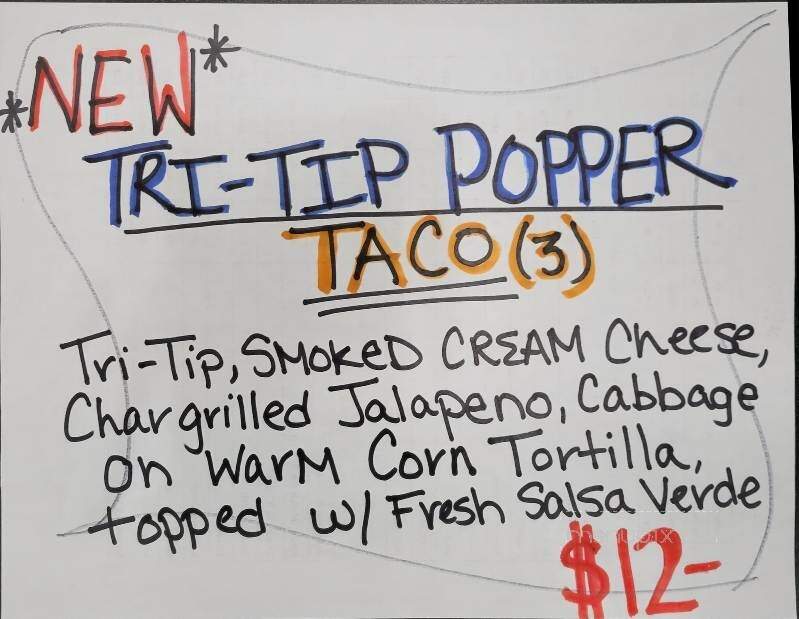 *NEW*
TRI-TIP POPPER
TACO (3)
Tri-Tip, SMOKED CREAM Cheese,
Chargrilled Jalapeno, Cabbage
on Warm Corn Tortilla,
topped w/ Fresh Salsa Verde
$12-